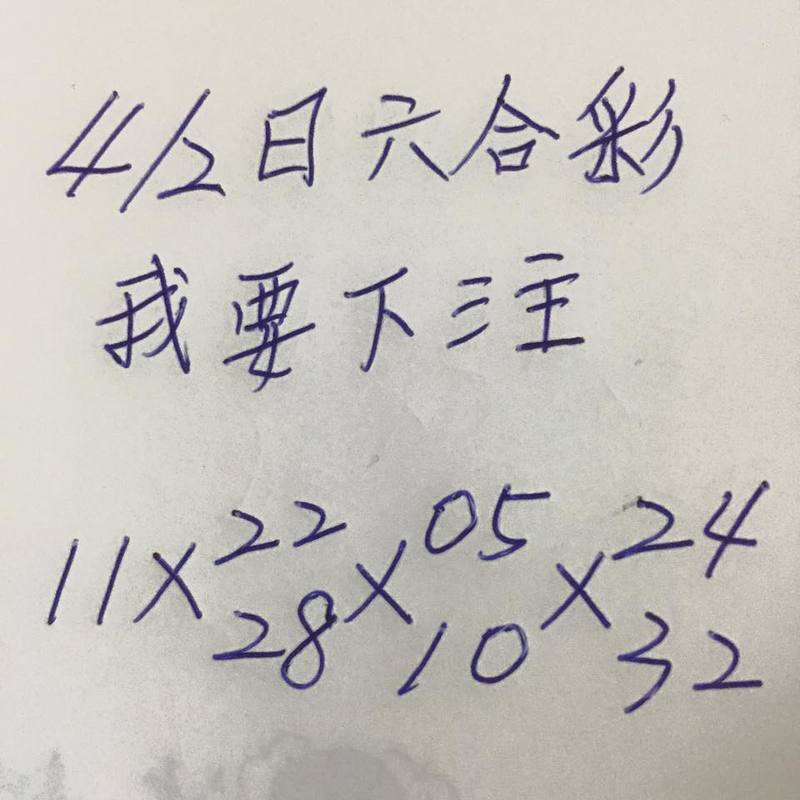 4/2日六合彩
我要下注
11×22×05×24
28 10 32